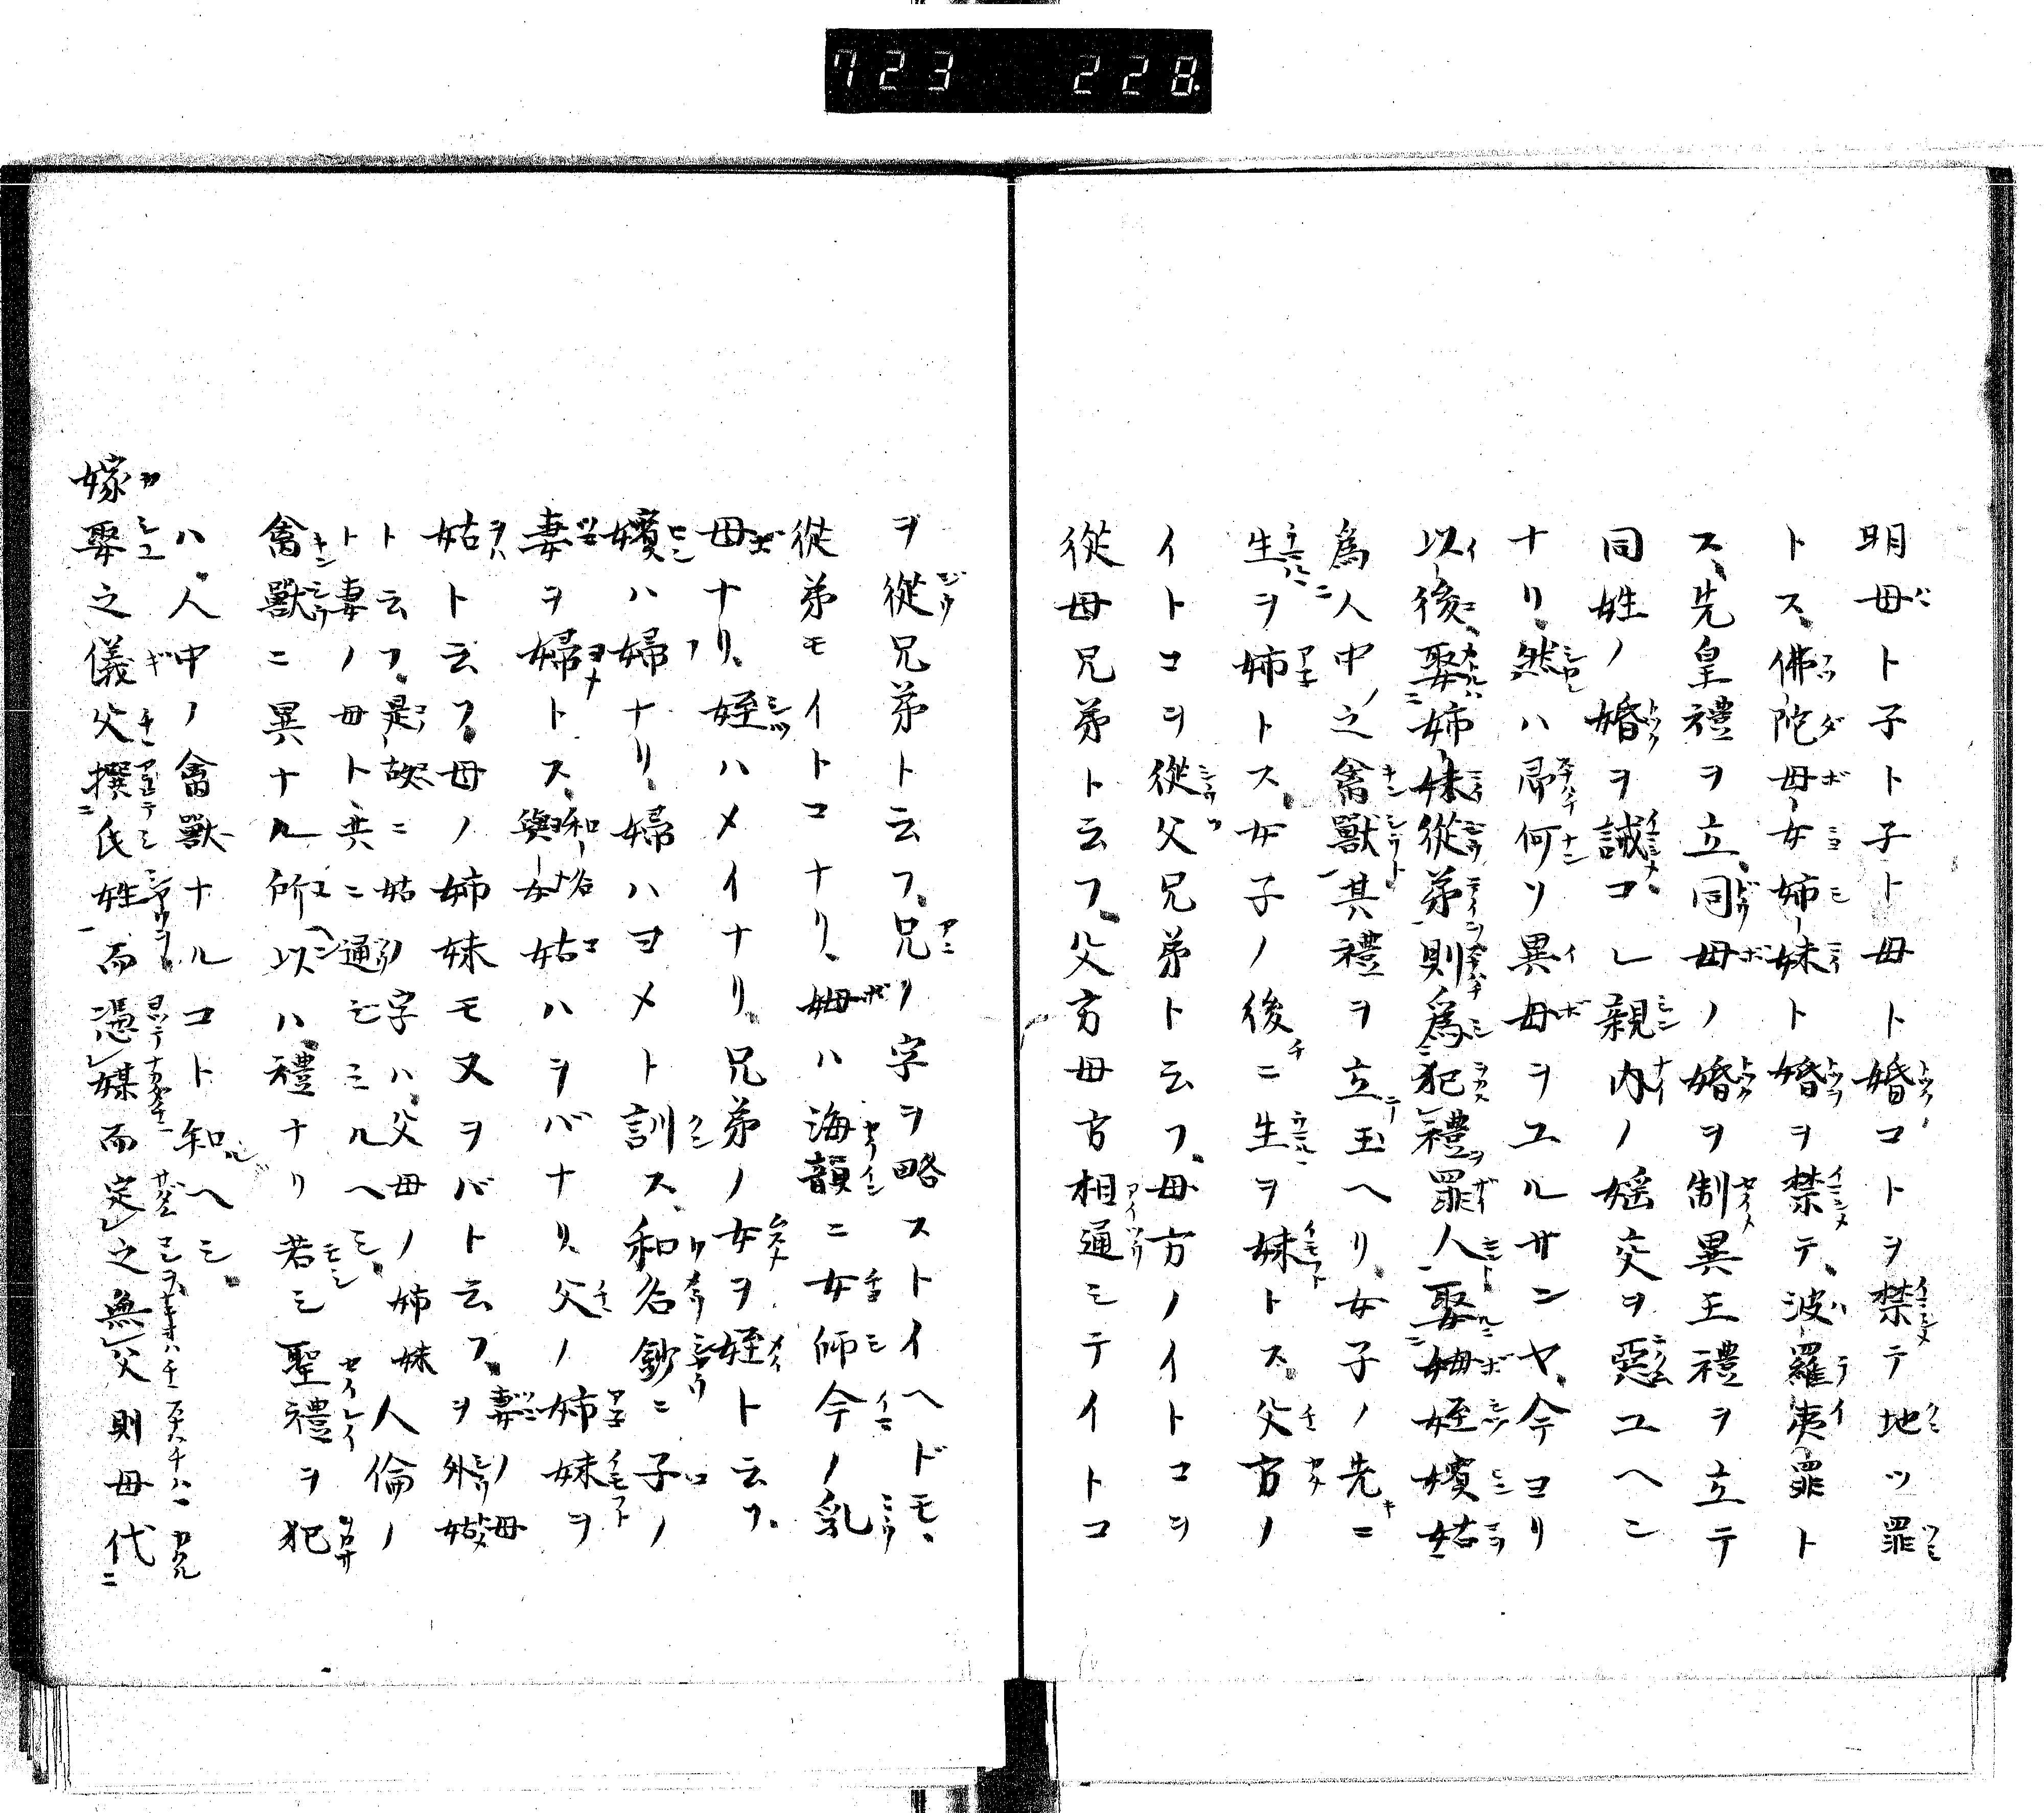 723 228
明母ト子ト子ト母ト婚コトヲ禁テ地ツ罪
トス、佛陀母女姉妹ト婚ヲ禁テ、波羅夷罪ト
ス、先皇禮ヲ立、同母ノ婚ヲ制異王禮ヲ立テ
同姓ノ婚ヲ誡コレ親内ノ婬交ヲ惡ユヘン
ナリ、然ハ帍何ソ異母ヲユルサンヤ、今ヨリ
以後、娶姉妹從弟則爲犯禮罪人娶姆姪嬪姑
爲人中之禽獸其禮ヲ立玉ヘリ、女子ノ先ニ
生ヲ姉トス、女子ノ後ニ生ヲ妹トス、父方ノ
イトコヲ從父兄弟ト云フ、母方ノイトコヲ
從母兄弟ト云フ、父方母方相通シテイトコ
ヲ從兄弟ト云フ、兄ノ字ヲ略ストイヘドモ、
從弟モイトコナリ、姆ハ海韻ニ女師今ノ乳
母ナリ、姪ハメイナリ、兄弟ノ女ヲ姪ト云フ、
嬪ハ婦ナリ、婦ハヨメト訓ス、和名鈔ニ子ノ
妻ヲ婦トス、姑ハヲバナリ、父ノ姉妹ヲ
姑ト云フ、母ノ姉妹モ又ヲバト云フ、妻ノ母ヲ外姑
ト云フ、是故ニ姑ノ字ハ、父母ノ姉妹
ト妻ノ母ト共ニ通シミルヘシ、人倫ノ
禽獸ニ異ナル所以ハ、禮ナリ若シ聖禮ヲ犯
ハ、人中ノ禽獸ナルコト知ヘシ、
嫁娶之儀父撰氏姓而憑媒而定之無父則母代